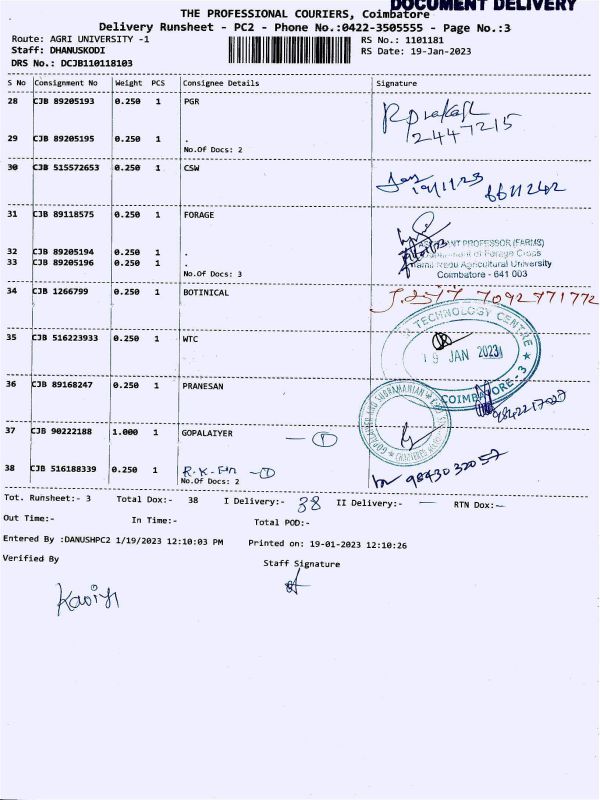 DOCUMENT DELIVERY
THE PROFESSIONAL COURIERS, Coimbatore
Delivery Runsheet - PC2 - Phone No.:0422-3505555 - Page No.:3
Route: AGRI UNIVERSITY -1 RS No.: 1101181
Staff: DHANUSKODI RS Date: 19-Jan-2023
DRS No.: DCJB110118103
S No Consignment No Weight PCS Consignee Details Signature
28 CJB 89205193 0.250 1 PGR
Rprakash
2447215
29 CJB 89205195 0.250 1 .
No.Of Docs: 2
30 CJB 515572653 0.250 1 CSW
19/1/23 6611242
31 CJB 89118575 0.250 1 FORAGE
ANT PROFESSOR (FARMS)
of Forage Crops
32 CJB 89205194 0.250 1 .
33 CJB 89205196 0.250 1 .
Agricultural University
Coimbatore - 641 003
No.Of Docs: 3
34 CJB 1266799 0.250 1 BOTINICAL
7092771772
TECHNOLOGY CENTRE
35 CJB 516223933 0.250 1 WTC
19 JAN 2023
COIMBATORE - 3
36 CJB 89168247 0.250 1 PRANESAN
9842217027
GOPALAIYER AND SUBRAMANIAN
CHARTERED
37 CJB 90222188 1.000 1 GOPALAIYER — 1
38 CJB 516188339 0.250 1 R.K. — 1
No.Of Docs: 2
9843032057
Tot. Runsheet:- 3 Total Dox:- 38 I Delivery:- 38 II Delivery:- — RTN Dox:- —
Out Time:- In Time:- Total POD:-
Entered By :DANUSHPC2 1/19/2023 12:10:03 PM Printed on: 19-01-2023 12:10:26
Verified By Staff Signature